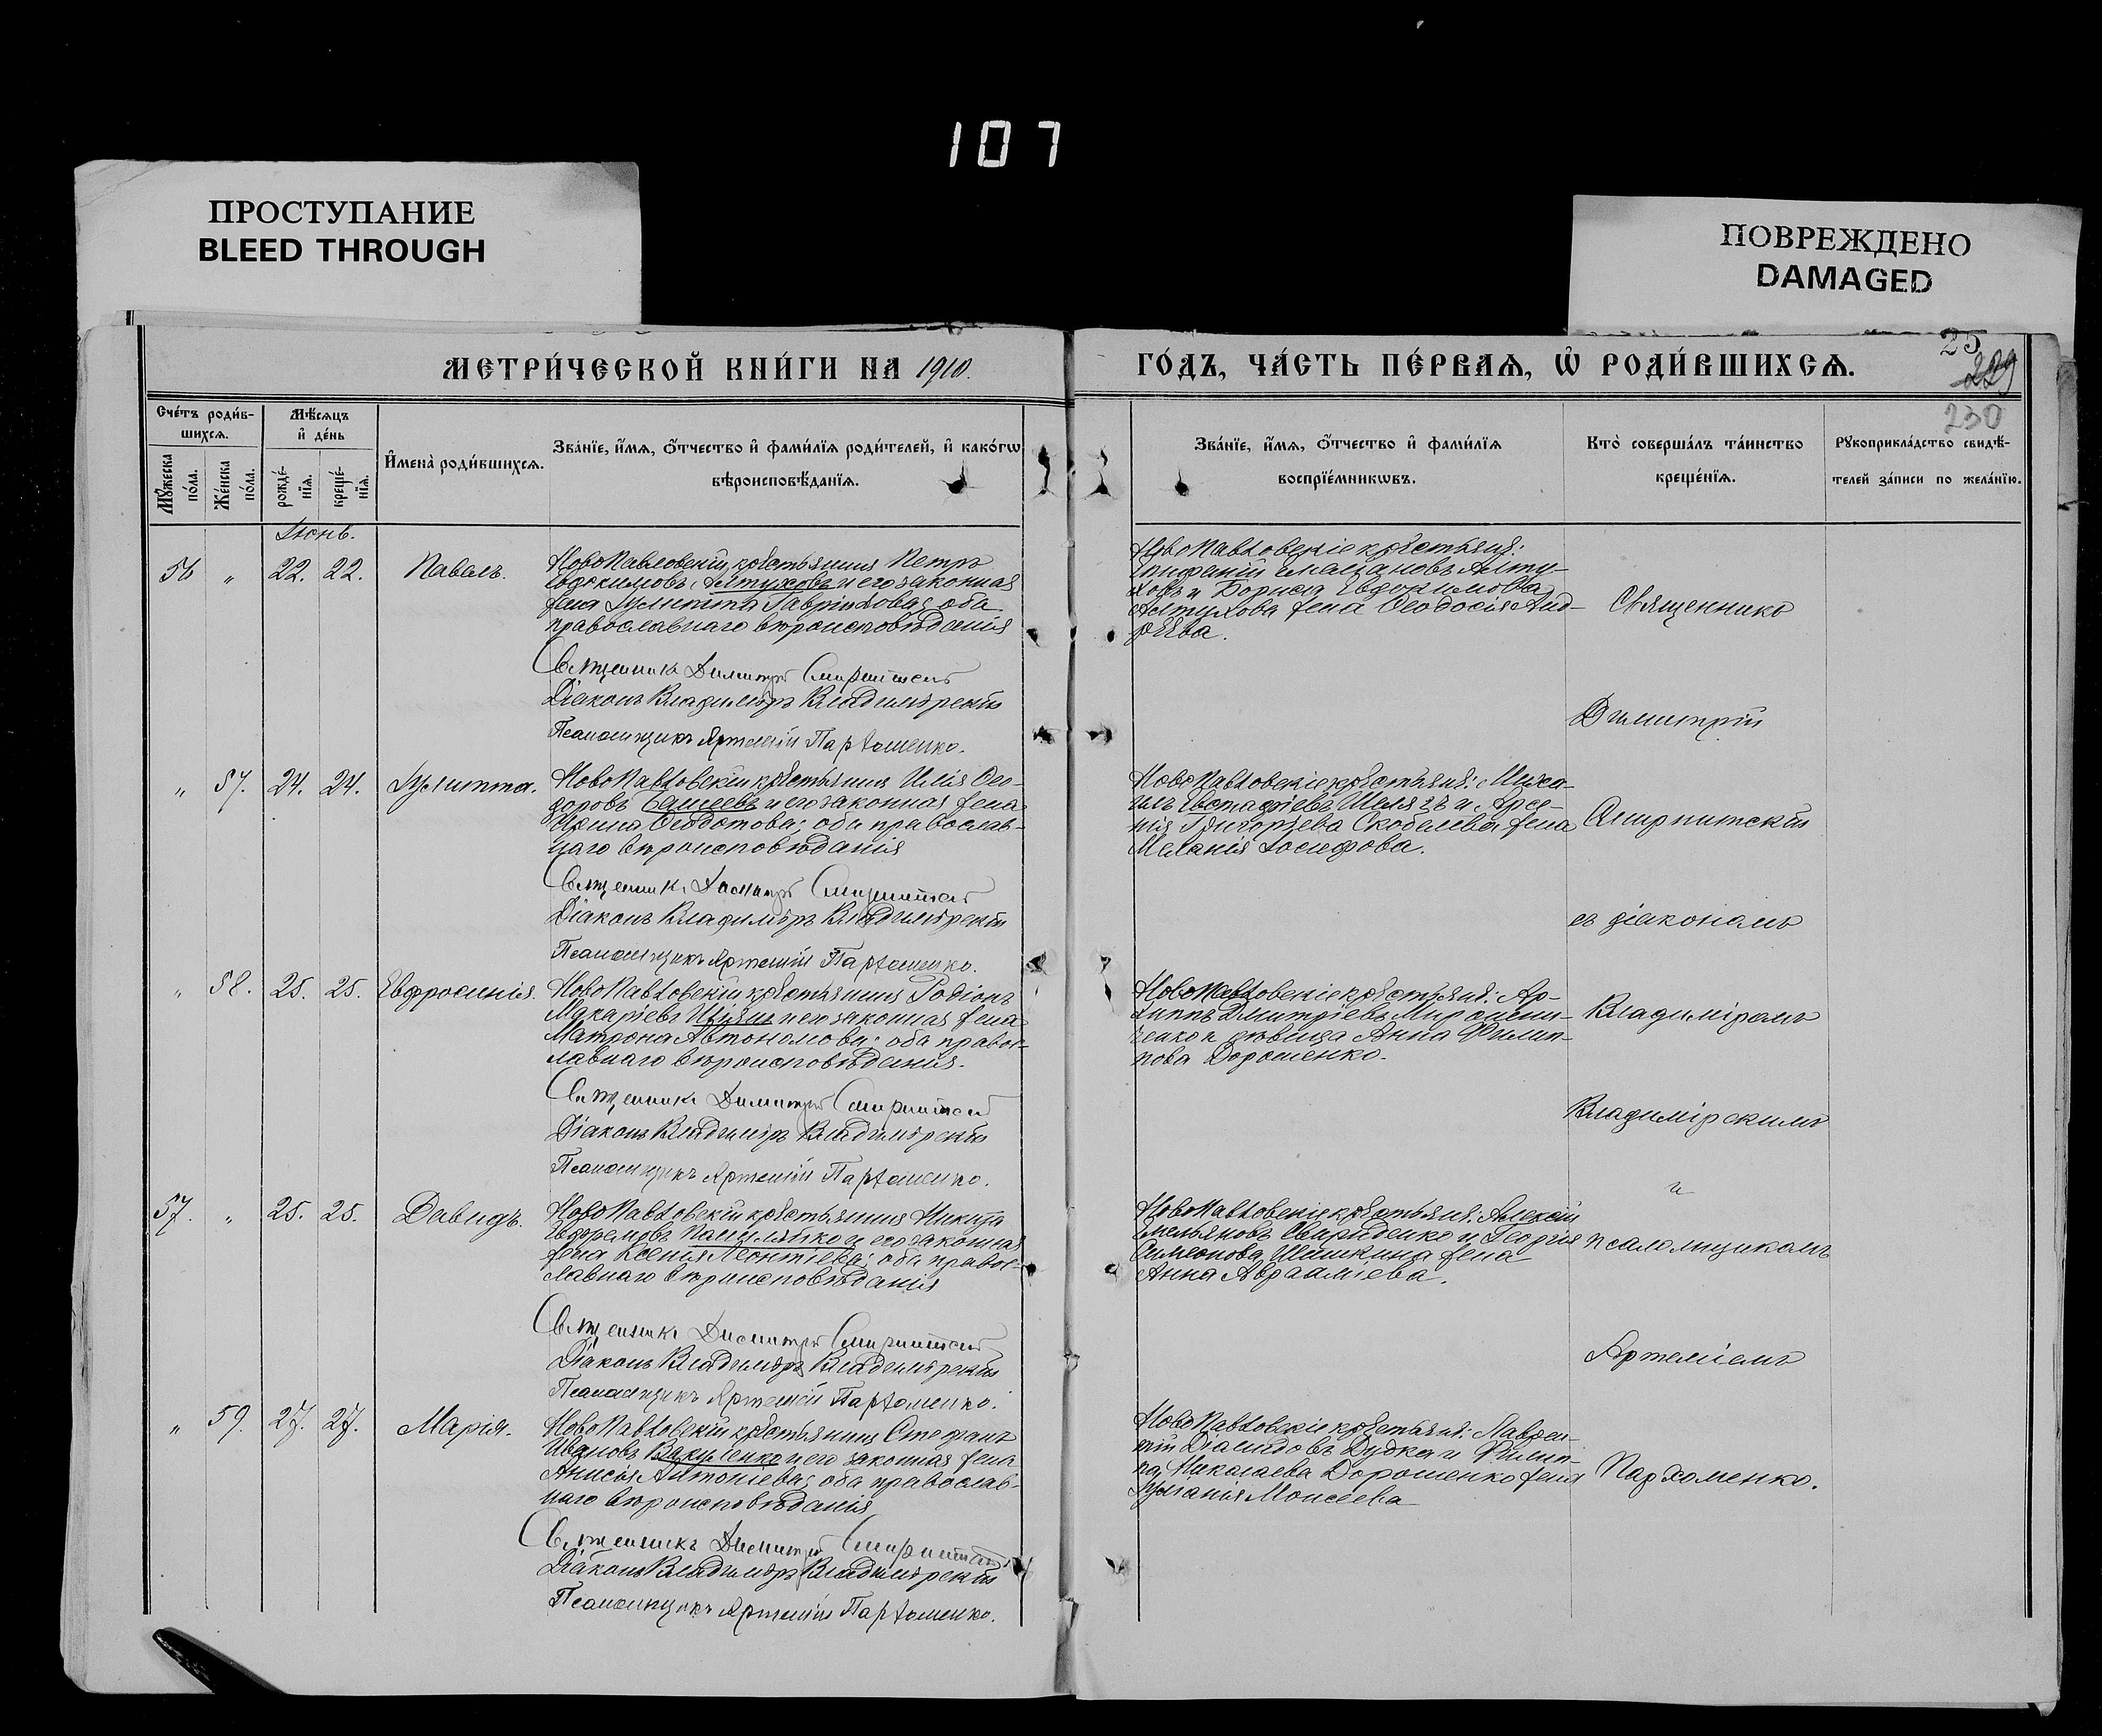 107
ПРОСТУПАНИЕ
BLEED THROUGH
ПОВРЕЖДЕНО
DAMAGED
МЕТРИ́ЧЕСКОЙ КНИ́ГИ НА 1910.
ГО́ДЪ, ЧА́СТЬ ПЕ́РВАѦ, Ѡ҆ РОДИ́ВШИХСѦ.
25
229
230
Сче́тъ роди́в-
шихсѧ.
Мꙋ́жеска
по́ла.
Же́нска
по́ла.
Мѣ́сѧцъ
и҆ де́нь
рожде́-
нїѧ.
креще́-
нїѧ.
И҆мена̀ роди́вшихсѧ.
Зва́нїе, и҆́мѧ, ѻ҆́тчество и҆ фами́лїѧ роди́телей, и҆ како́гѡ
вѣроисповѣ́данїѧ.
Зва́нїе, и҆́мѧ, ѻ҆́тчество и҆ фами́лїѧ
воспрїе́мникѡвъ.
Кто̀ соверша́лъ та́инство
креще́нїѧ.
Рꙋкоприкла́дство свидѣ́-
телей за́писи по жела́нїю.
Іюнь.
56 " 22. 22. Павелъ.
НовоПавловскій крестьянинъ Петръ
Евдокимовъ Алтуховъ и его законная
жена Іулитта Гавріилова; оба
православнаго вѣроисповѣданія
Священникъ Димитрій
Діаконъ Владиміръ Владимірскій
Псаломщикъ Артемій Пархоменко.
НовоПавловскіе крестьяне:
Алту-
ховъ и Бориса Евдокимова
Алтухова жена Ѳеодосія Анд-
реева.
Священникъ
Димитрій
" 57. 24. 24. Іулитта.
НовоПавловскій крестьянинъ Илія Ѳео-
доровъ и его законная жена
Ирина Ѳеодотова; оба православ-
наго вѣроисповѣданія
Священникъ Димитрій
Діаконъ Владиміръ Владимірскій
Псаломщикъ Артемій Пархоменко.
НовоПавловскіе крестьяне: Миха-
илъ Евстафіевъ и Арсе-
нія Григорьева Скобелева жена
Меланія Іосифова.
съ діакономъ
" 58. 25. 25. Евфросинія.
НовоПавловскій крестьянинъ Родіонъ
Макаріевъ и его законная жена
Матрона Автономова; оба правос-
лавнаго вѣроисповѣданія.
Священникъ Димитрій
Діаконъ Владиміръ Владимірскій
Псаломщикъ Артемій Пархоменко.
НовоПавловскіе крестьяне: Ар-
хиппъ Дмитріевъ Миронен-
ченко и дѣвица Анна Филип-
пова Дорошенко.
Владиміромъ
Владимірскимъ
и
57. " 25. 25. Давидъ.
НовоПавловскій крестьянинъ Никита
Ефремовъ и его законная
жена Ксенія Леонтіева; оба правос-
лавнаго вѣроисповѣданія
Священникъ Димитрій
Діаконъ Владиміръ Владимірскій
Псаломщикъ Артемій Пархоменко.
НовоПавловскіе крестьяне: Алексій
Емельяновъ Свириденко и Георгія
Симеонова Шишкина жена
Анна Аврааміева.
псаломщикомъ
Артеміемъ
" 59. 27. 27. Марія.
НовоПавловскій крестьянинъ Стефанъ
Ивановъ Вакуленко и его законная жена
Анисія Антоніева; оба православ-
наго вѣроисповѣданія
Священникъ Димитрій
Діаконъ Владиміръ Владимірскій
Псаломщикъ Артемій Пархоменко.
НовоПавловскіе крестьяне: Лаврен-
тій Діомидовъ Дудка и Филип-
па Николаева Дорошенко жена
Іуліанія Моисеева
Пархоменко.